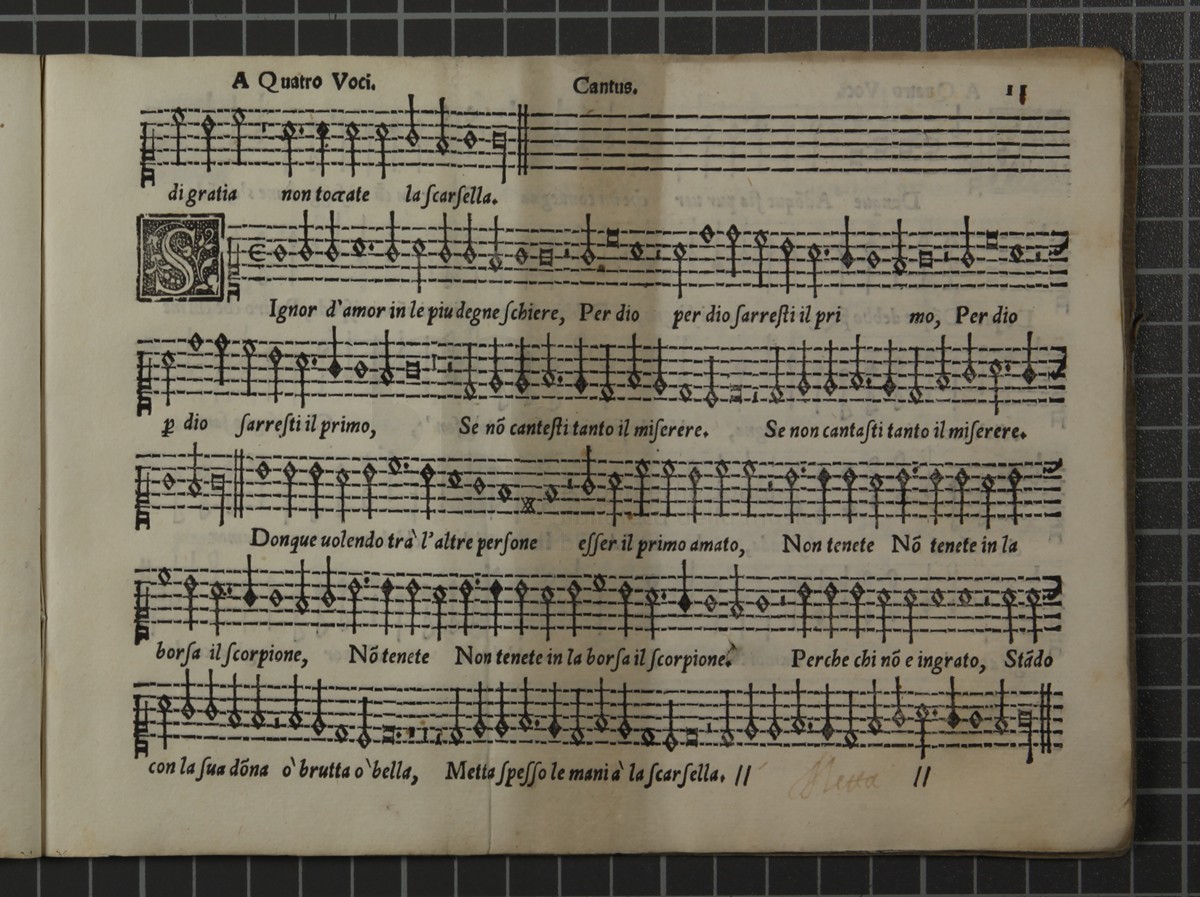 A Quatro Voci. Cantus. 11
di gratia non toccate la ſcarſella.
S
Ignor d'amor in le piu degne ſchiere, Per dio per dio ſarreſti il pri mo, Per dio
ꝑ dio ſarreſti il primo, Se nō canteſti tanto il miſerere. Se non cantaſti tanto il miſerere.
Donque uolendo trà l'altre perſone eſſer il primo amato, Non tenete Nō tenete in la
borſa il ſcorpione, Nō tenete Non tenete in la borſa il ſcorpione. Perche chi nō e ingrato, Stādo
con la ſua dōna ò brutta o bella, Metta ſpeſſo le mani à la ſcarſella. // Metta //